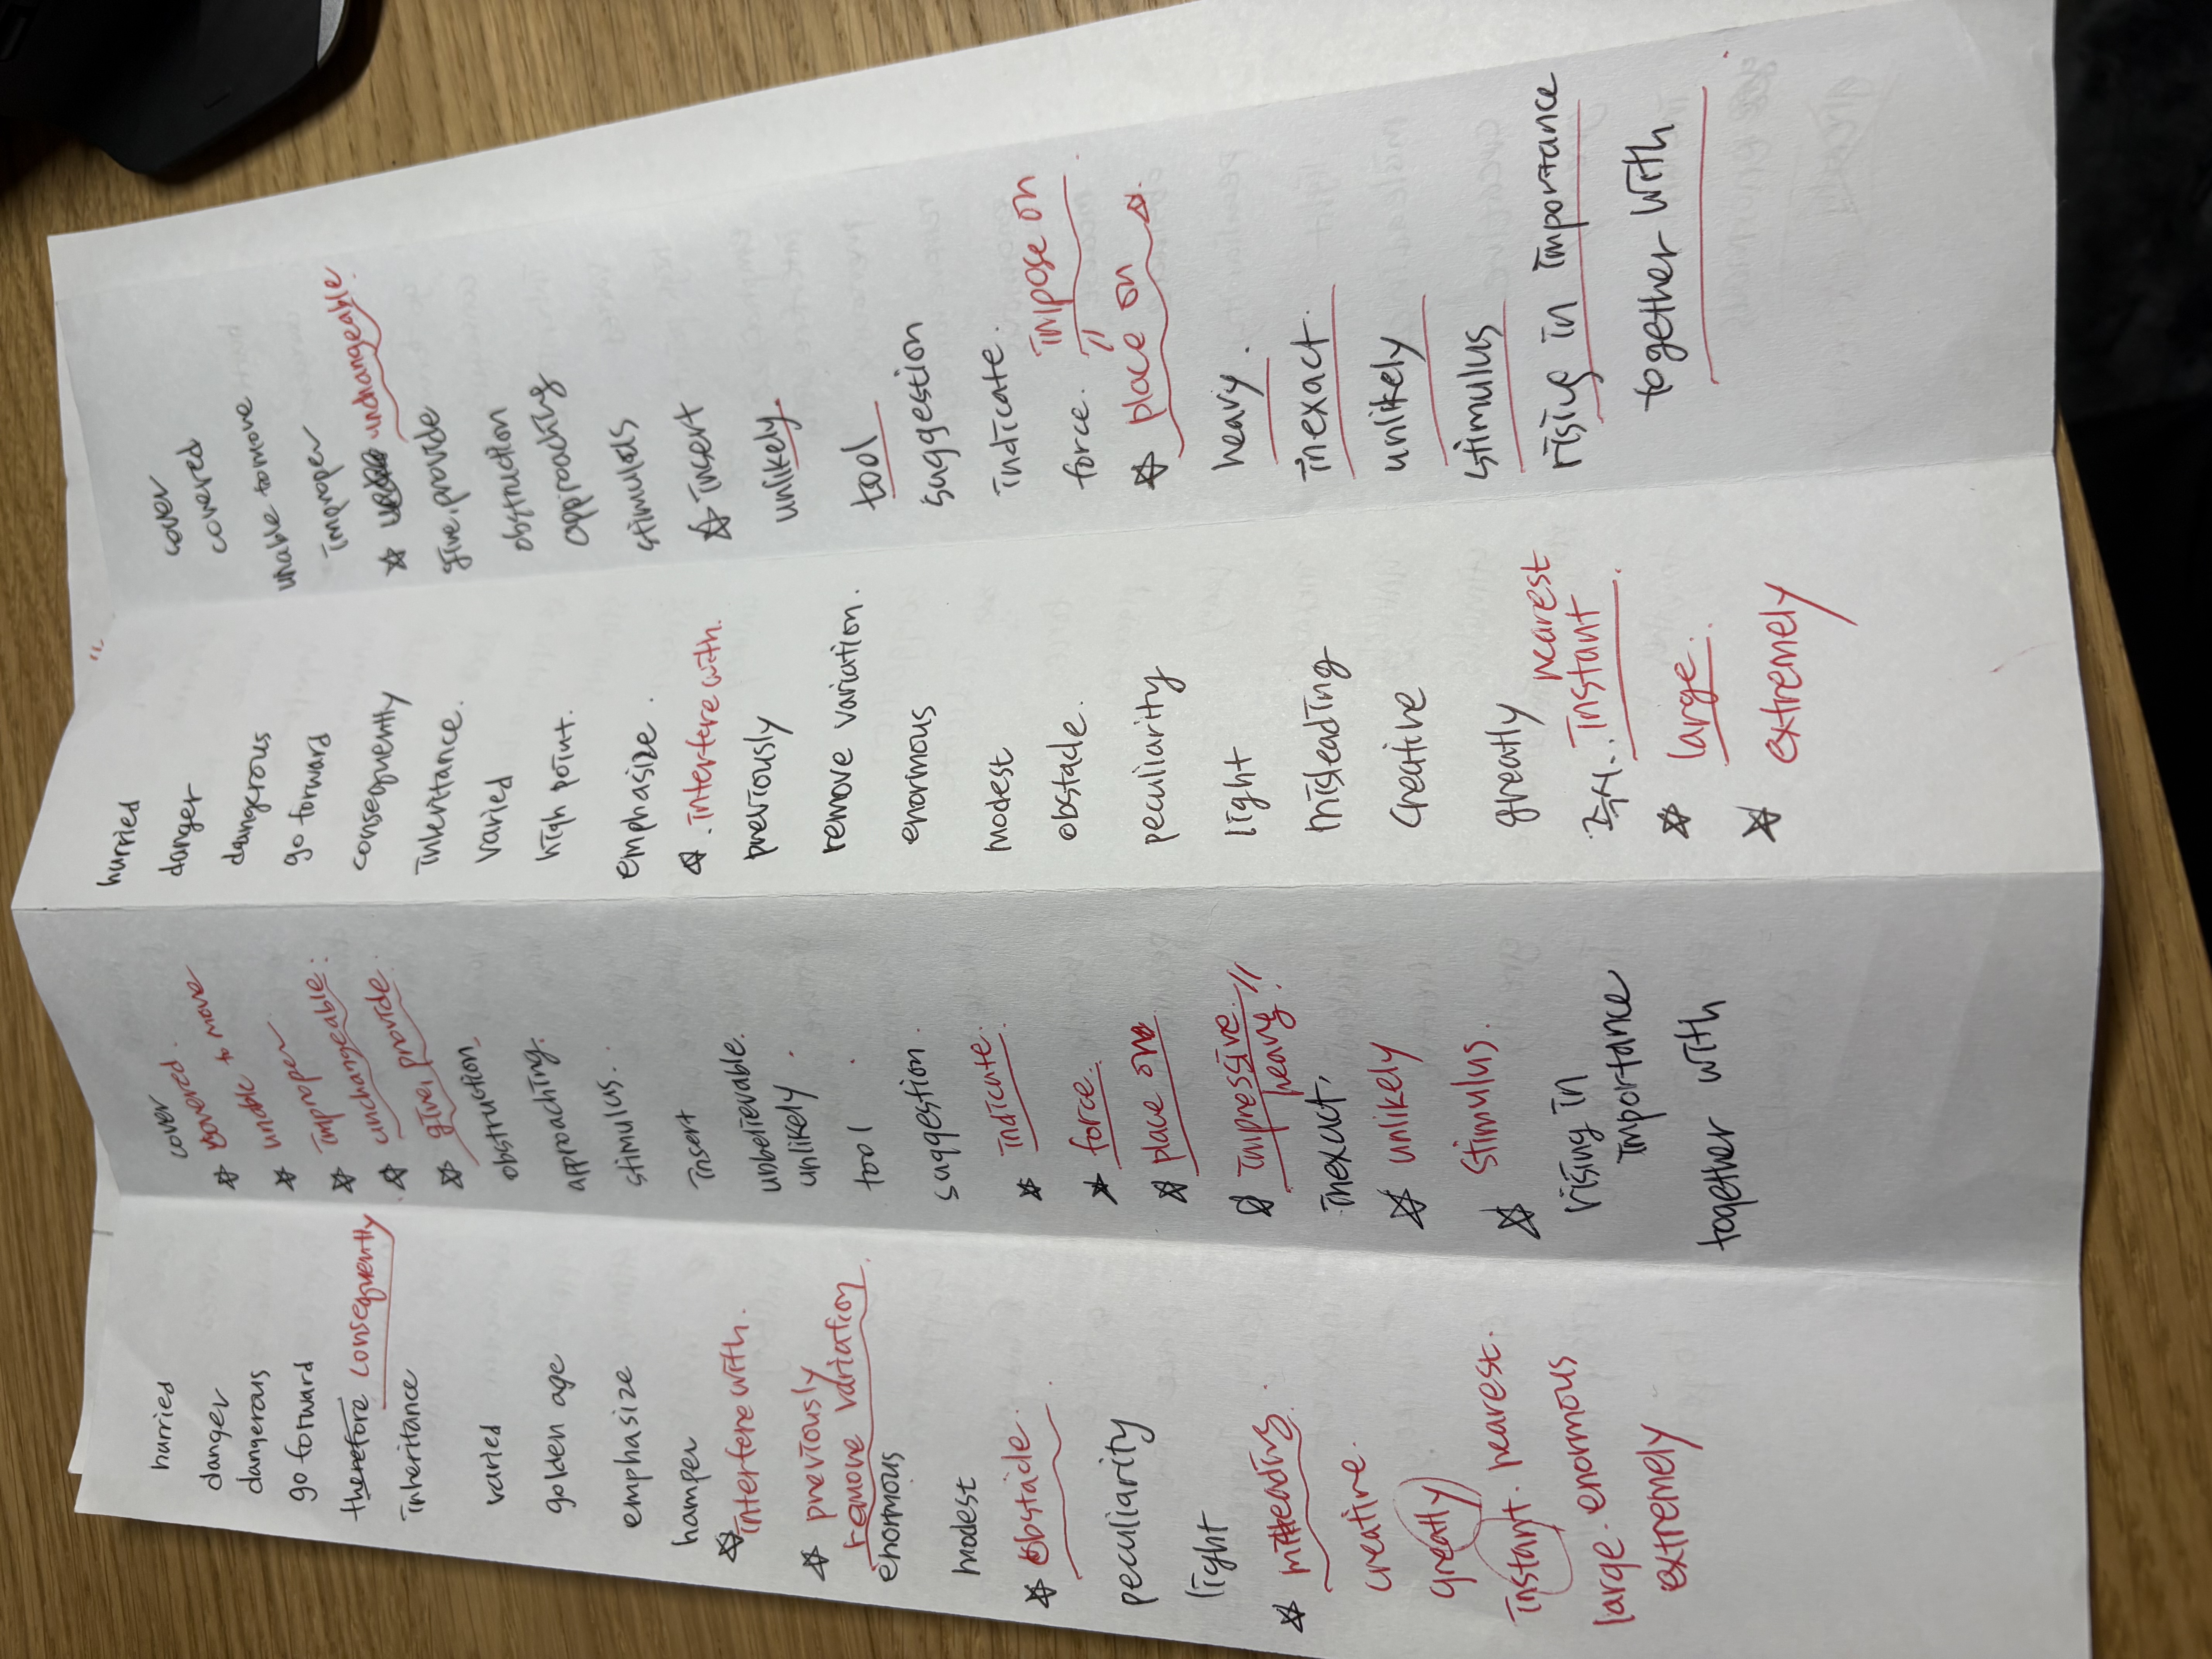 hurried
danger
dangerous
go forward
therefore consequently
inheritance
varied
golden age
emphasize
hamper
☆ interfere with.
☆ previously
remove variation.
enormous
modest
☆ obstacle.
peculiarity
light
☆
creative.
greatly
instant. nearest.
large. enormous
extremely
cover
☆ covered.
☆ unable to move
☆ improper
☆ unchangeable.
☆ give, provide.
obstruction.
approaching.
stimulus.
insert
unbelievable.
unlikely.
tool.
suggestion.
☆ indicate.
☆ force.
☆ place on
☆ impressive. //
heavy!!
inexact.
☆ unlikely
☆ stimulus.
rising in
importance
together with
"
hurried
danger
dangerous
go forward
consequently
inheritance.
varied
high point.
emphasize.
☆. interfere with.
previously
remove variation.
enormous
modest
obstacle.
peculiarity
light
misleading
creative
greatly
nearest
instant.
☆ large.
☆ extremely
cover
covered
unable to move
improper
☆ unchangeable.
give, provide
obstruction
approaching
stimulus
☆ insert
unlikely.
tool
suggestion
indicate.
force. impose on
☆ place on ☆.
heavy.
inexact.
unlikely
stimulus
rising in importance
together with